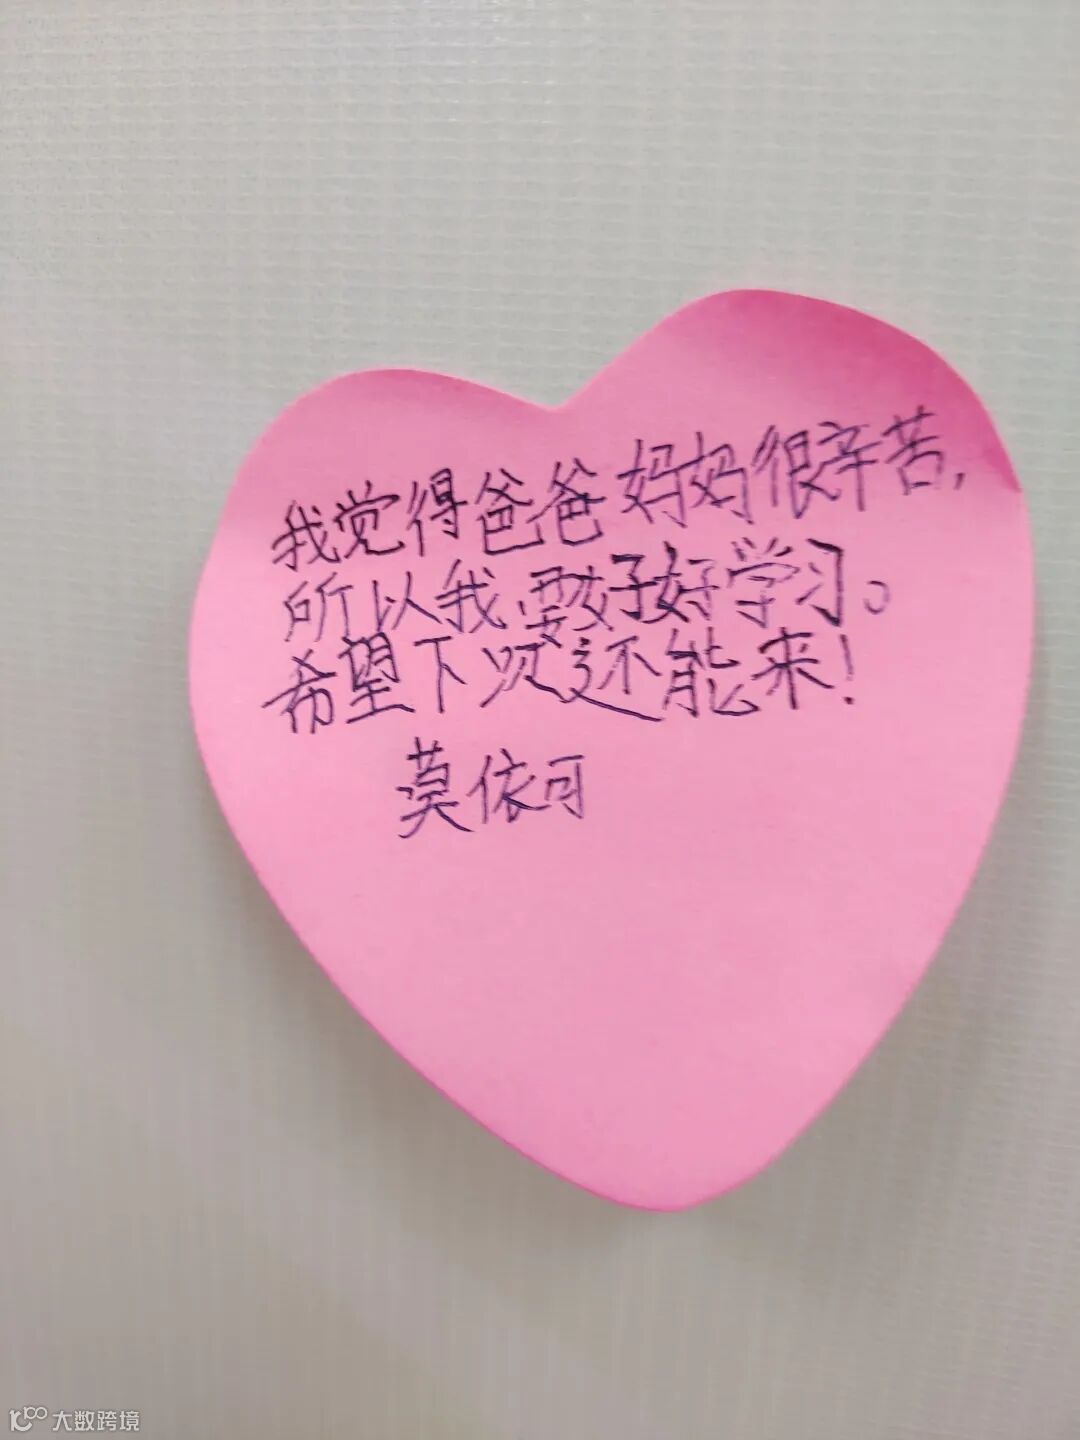 我觉得爸爸妈妈很辛苦，
所以我要好好学习。
希望下次还能来！
莫依可
大数跨境